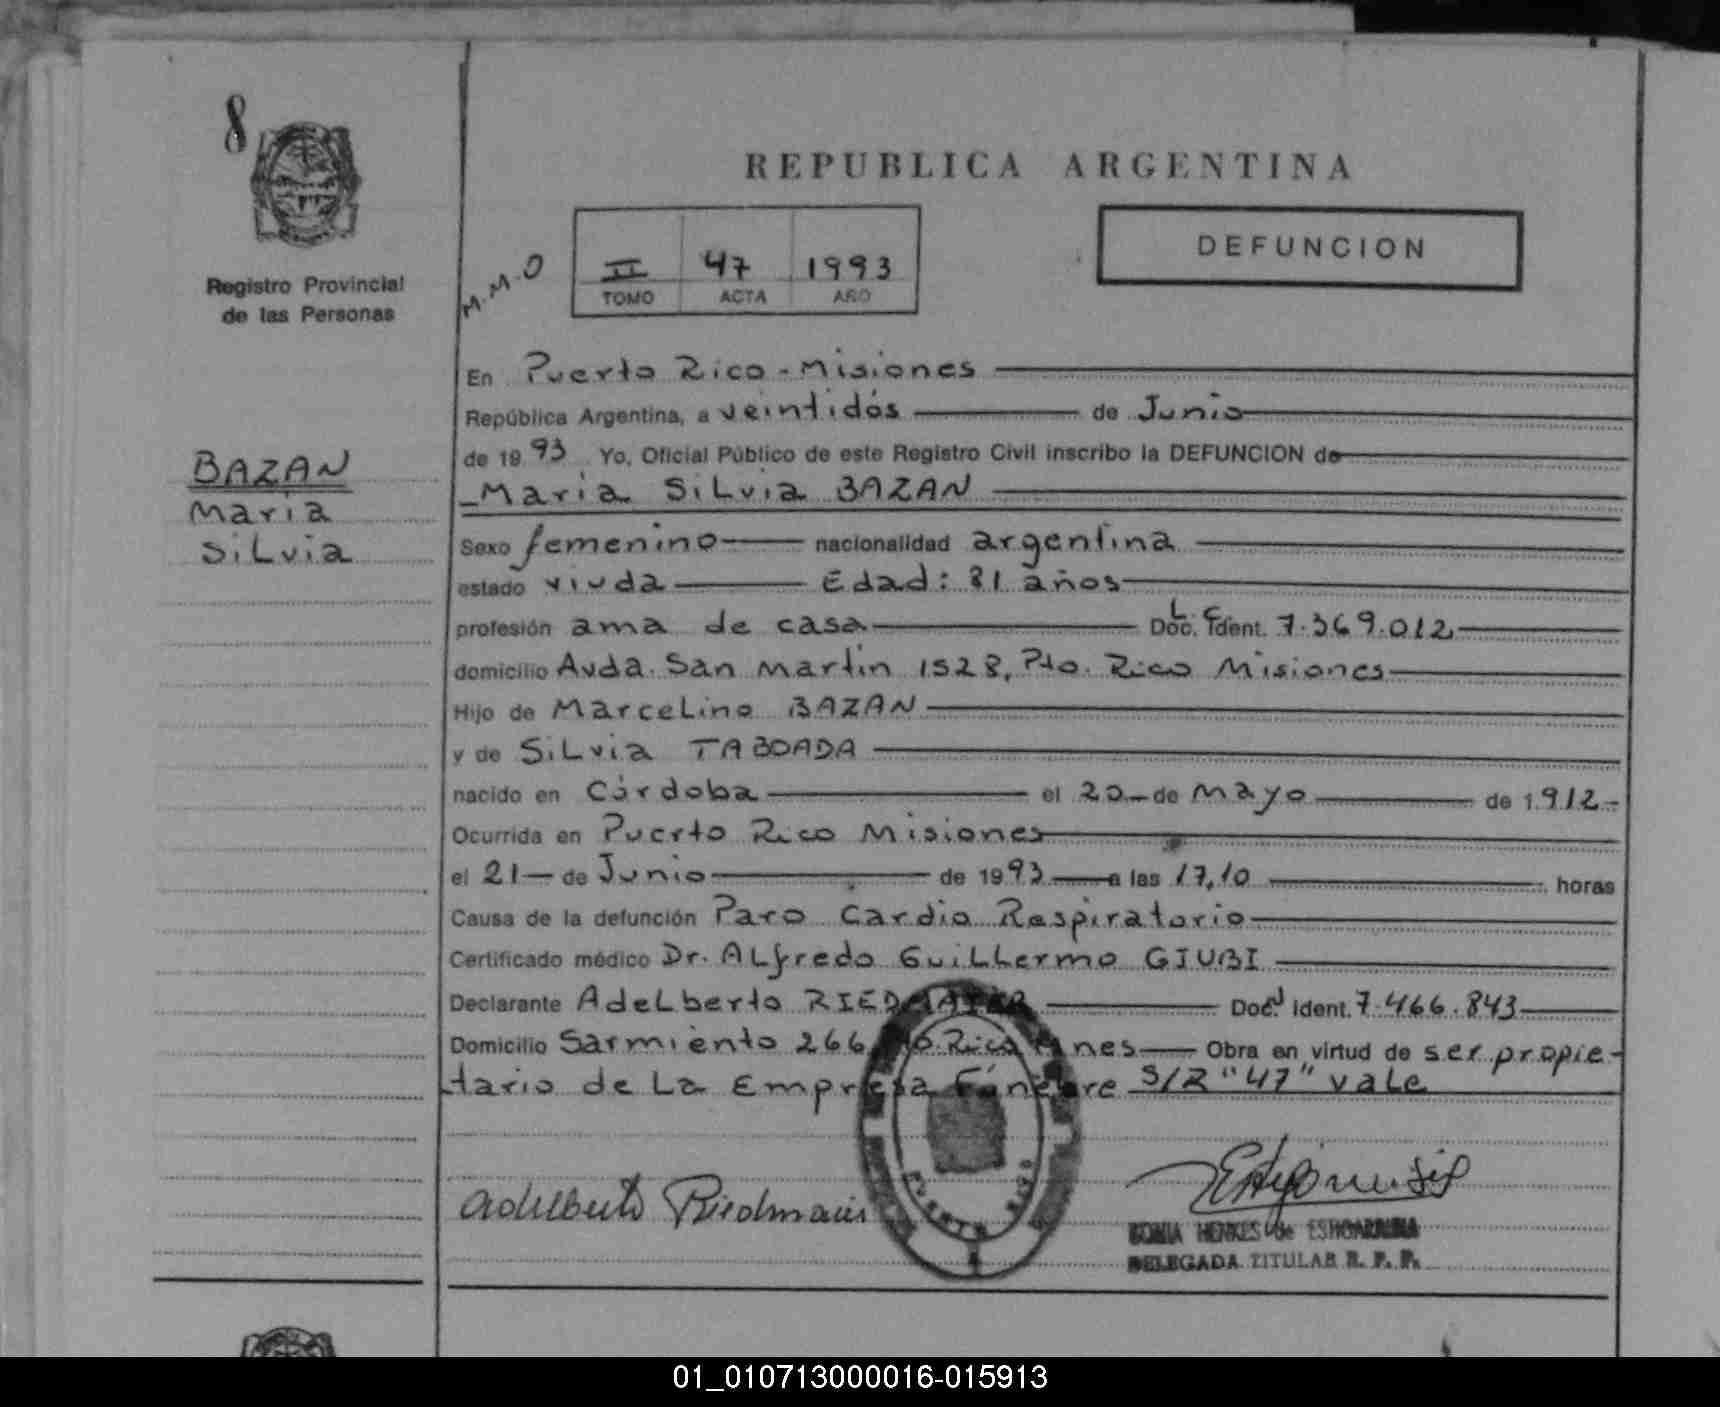 8
REPUBLICA ARGENTINA
DEFUNCION
Registro Provincial
de las Personas
M.M.O
II 47 1993
TOMO ACTA AÑO
BAZAN
Maria
Silvia
En Puerto Rico - Misiones
República Argentina, a veintidós de Junio
de 1993 Yo, Oficial Público de este Registro Civil inscribo la DEFUNCION de
Maria Silvia BAZAN
Sexo femenino nacionalidad argentina
estado viuda Edad: 81 años
profesión ama de casa L.C. Doc. Ident. 7.369.012
domicilio Avda. San Martin 1528, Pto. Rico Misiones
Hijo de Marcelino BAZAN
y de Silvia TABOADA
nacido en Córdoba el 20 de Mayo de 1.912
Ocurrida en Puerto Rico Misiones
el 21 de Junio de 1993 a las 17,10 horas
Causa de la defunción Paro Cardio Respiratorio
Certificado médico Dr. Alfredo Guillermo GIUBI
Declarante Adelberto RIEDMAIER Doc. Ident. 7.466.843
Domicilio Sarmiento 266 Rico Mnes Obra en virtud de ser propie-
tario de La Empresa Fúnebre S/R "47" vale
Adelberto Riedmaier
PUERTO RICO
SONIA HENKES de
DELEGADA TITULAR R. P. P.
01_010713000016-015913